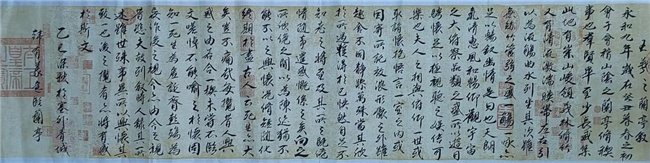 王羲之蘭亭敘
永和九年歲在癸丑暮春之初
會于會稽山陰之蘭亭脩禊
事也羣賢畢至少長咸集
此地有崇山峻領茂林脩竹
又有清流激湍暎帶左右引
以為流觴曲水列坐其次雖
無絲竹管弦之盛一觴一詠亦
足以暢敘幽情是日也天朗
氣清惠風和暢仰觀宇宙
之大俯察品類之盛所以遊目
騁懷足以極視聽之娛信可
樂也夫人之相與俯仰一世或
取諸懷抱悟言一室之內或
因寄所託放浪形骸之外雖
趣舍萬殊靜躁不同當其欣
於所遇蹔得於己怏然自足不
知老之將至及其所之既惓
情隨事遷感慨係之矣向之
所欣俛仰之間以為陳迹猶不
能不以之興懷況脩短隨化
終期於盡古人云死生亦大
矣豈不痛哉每攬昔人興
感之由若合一契未嘗不臨
文嗟悼不能喻之於懷固
知一死生為虛誕齊彭殤為
妄作後之視今亦由今之視
昔悲夫故列敘時人錄其所
述雖世殊事異所以興懷其
致一也後之攬者亦將有感
於斯文
乙巳深秋於
臨蘭亭